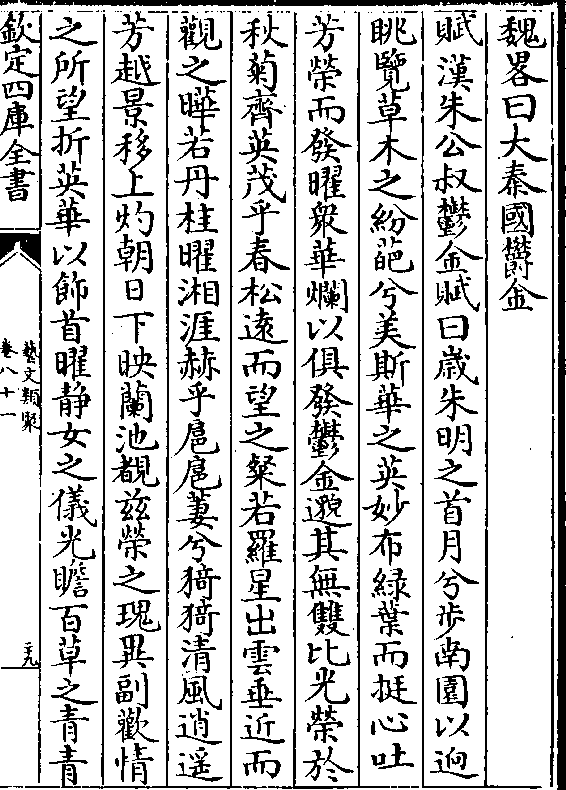 魏畧曰大秦國欝金
賦漢朱公叔鬱金賦曰歳朱明之首月兮步南園以逈
眺覽草木之紛葩兮美斯華之英妙布緑葉而挺心吐
芳榮而發曜衆華爛以俱發鬱金邈其無雙比光榮於
秋菊齊英茂乎春松逺而望之粲若羅星出雲垂近而
觀之曄若丹桂曜湘涯赫乎扈扈萋兮猗猗清風逍遥
芳越景移上灼朝日下映蘭池覩兹榮之瑰異副歡情
之所望折英華以飾首曜静女之儀光瞻百草之青青
欽定四庫全書
藝文類聚
卷八十一
二十九